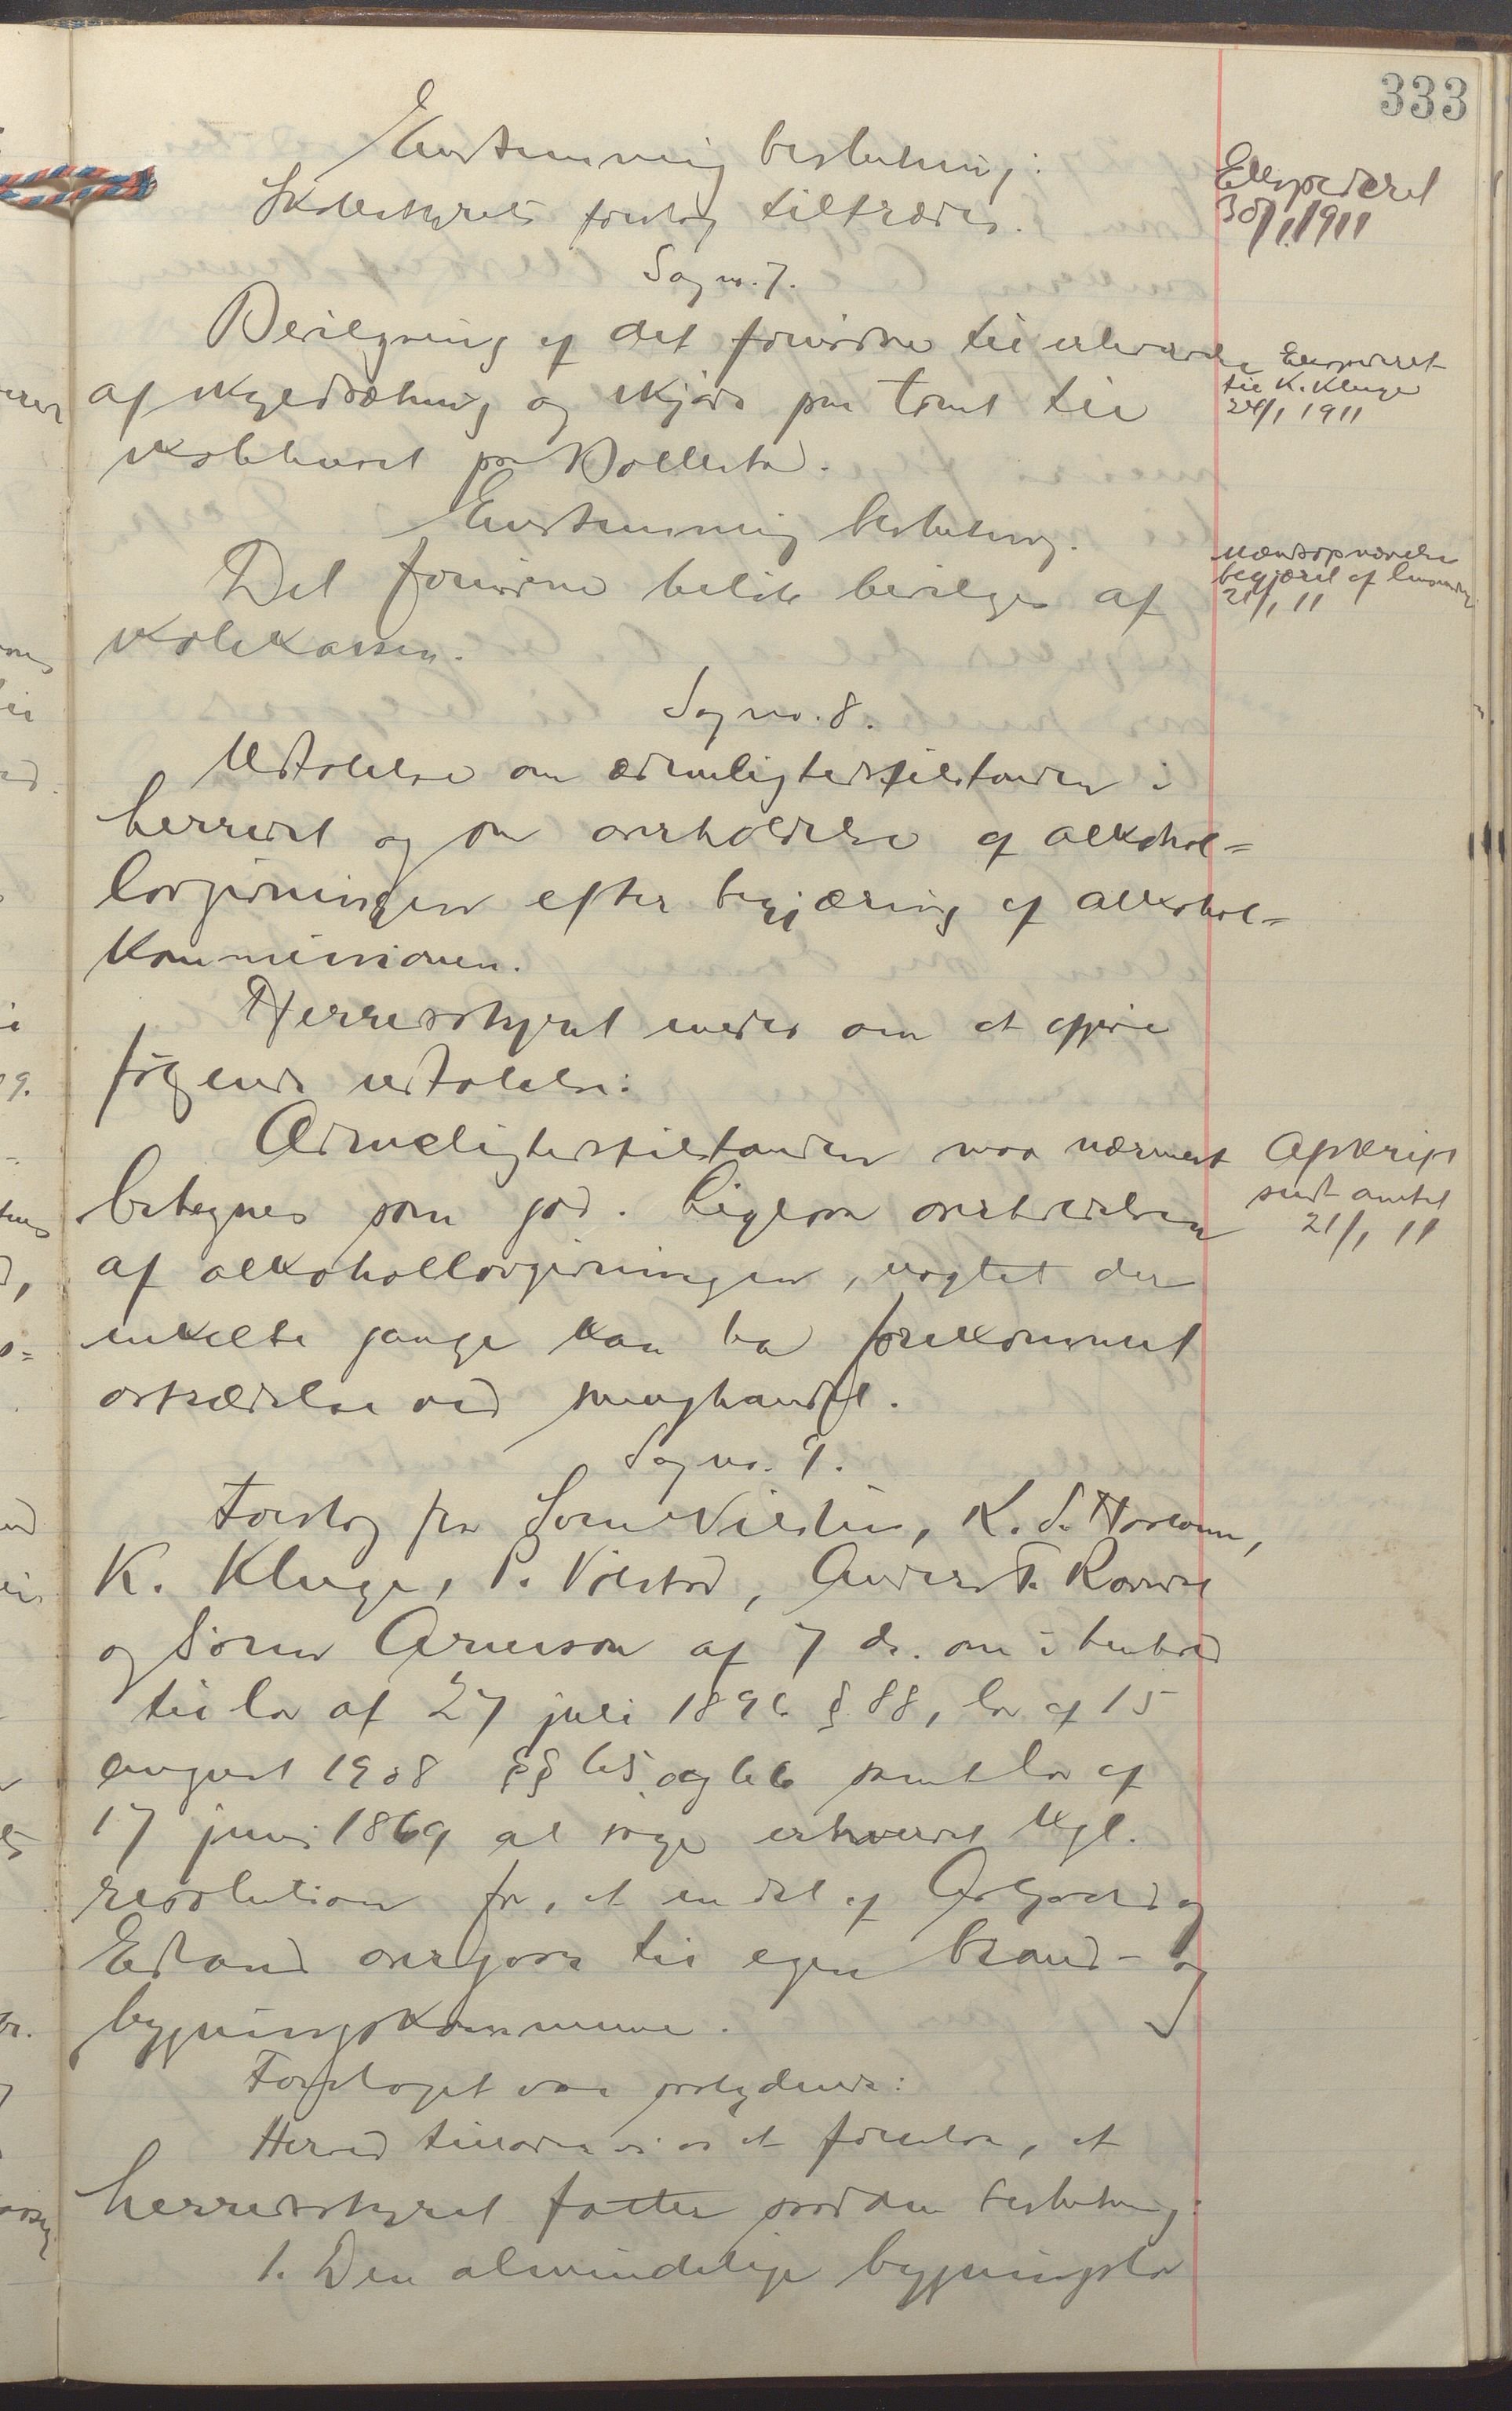 333
Enstemmig beslutning:
Skolestyrets forslag tiltrædes.
Expederet
30/1 1911
Sag nr. 7.
Bevilgning af det fornødne til udvirkelse
af skyldsætning og skjøde paa tomt til
skolehuset paa
Expederet
til K. Kluge
24/1 1911
Enstemmig beslutning.
Det fornødne beløb bevilges af
skolekassen.
begjæret af
21/1 11
Sag nr. 8.
Udtalelse om ædruelighedstilstanden i
herredet og om overholdelse af alkohol-
lovgivningen efter begjæring af alkohol-
kommissionen.
Herredsstyret enedes om at afgive
følgende udtalelse:
Ædruelighedstilstanden maa nærmest
betegnes som god. Ligesaa overholdelsen
af alkohollovgivningen, uagtet der
enkelte gange kan ha forekommet
overtrædelse ved smughandel.
Afskrift
sendt amtet
21/1 11
Sag nr. 9.
Forslag fra Søren Vilstin, K. S.
K. Kluge, P. Ollestad, Anders T.
og Søren Arneson af 7 ds. om i henhold
til lov af 27 juli 1896 § 88, lov af 15
august 1908 §§ 65 og 66 samt lov af
17 juni 1869 at søge erhvervet kgl.
resolution for, at en del af Aalgaard og
Edland overgaar til egen brand- og
bygningskommune.
Forslaget var saalydende:
Herved tillader vi os at foreslaa, at
herredsstyret fatter saadan beslutning:
1. Den almindelige bygningslov